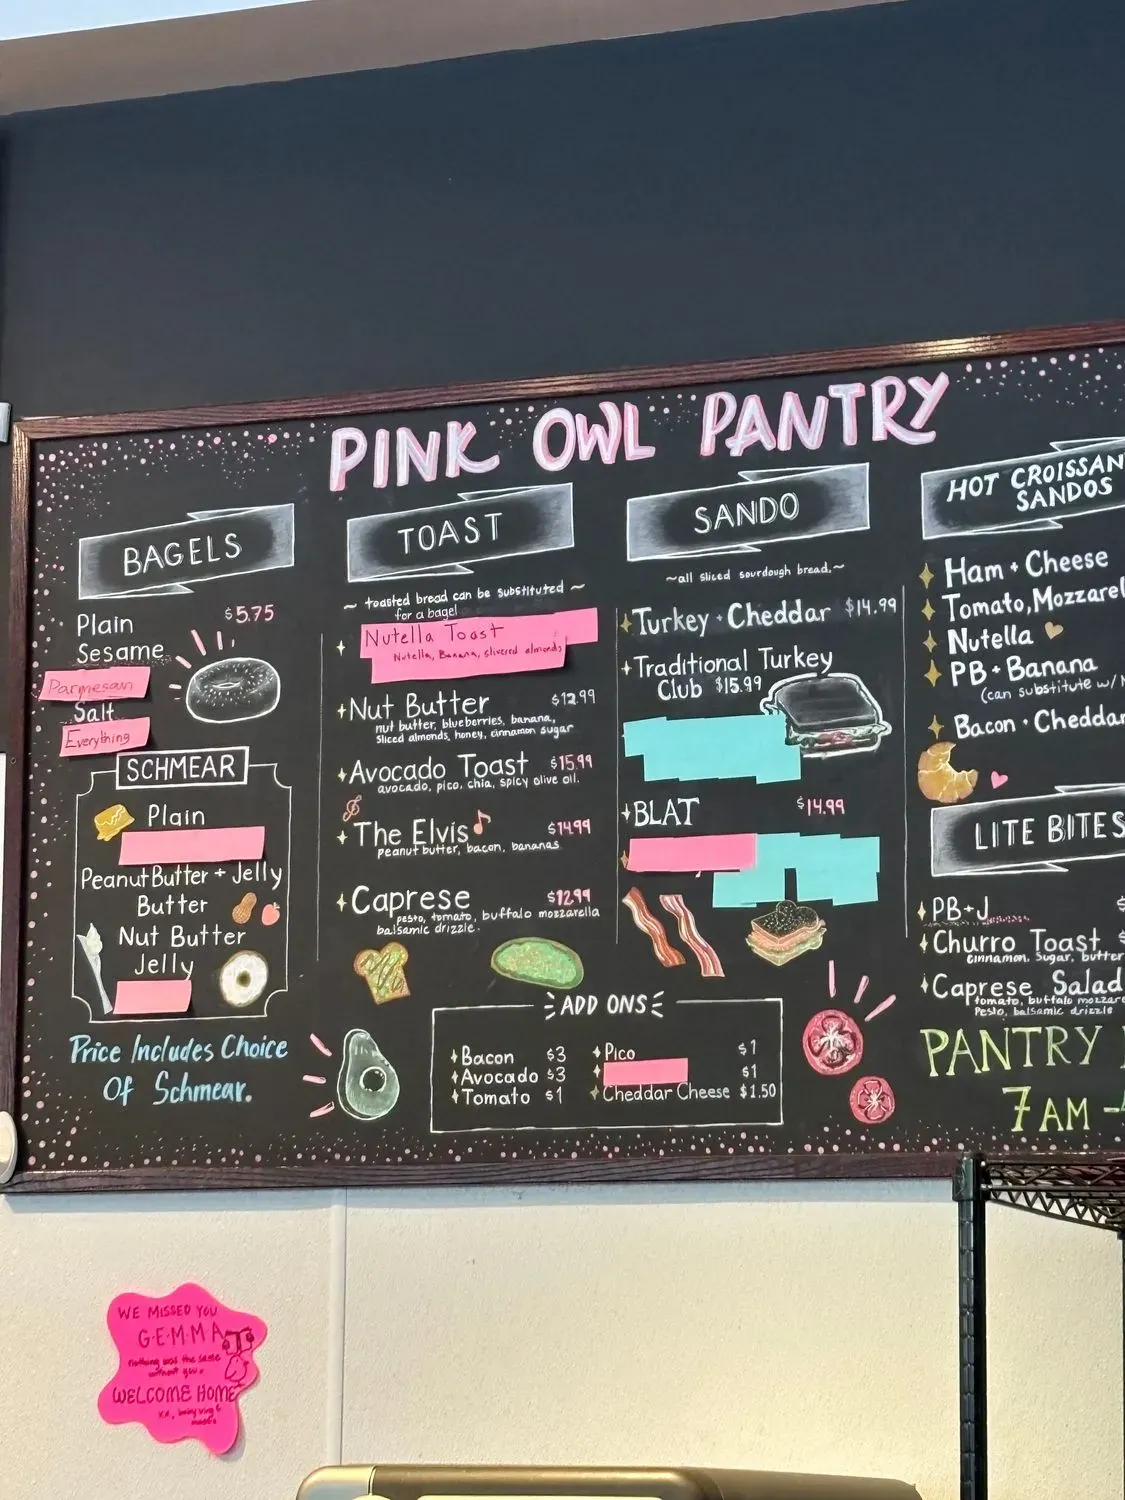 PINK OWL PANTRY
BAGELS
Plain $5.75
Sesame
Parmesan
Salt
Everything
SCHMEAR
Plain
Peanut Butter + Jelly
Butter
Nut Butter
Jelly
Price Includes Choice
Of Schmear.
TOAST
~ toasted bread can be substituted ~
for a bagel
Nutella Toast
Nutella, Banana, slivered almonds
Nut Butter $12.99
nut butter, blueberries, banana,
sliced almonds, honey, cinnamon sugar
Avocado Toast $15.99
avocado, pico, chia, spicy olive oil.
The Elvis $14.99
peanut butter, bacon, bananas
Caprese $12.99
pesto, tomato, buffalo mozzarella
balsamic drizzle.
SANDO
~all sliced sourdough bread.~
Turkey + Cheddar $14.99
Traditional Turkey
Club $15.99
BLAT $14.99
ADD ONS
Bacon $3
Avocado $3
Tomato $1
Pico $1
$1
Cheddar Cheese $1.50
HOT CROISSAN
SANDOS
Ham + Cheese
Tomato, Mozzarel
Nutella
PB + Banana
(can substitute w/
Bacon + Cheddar
LITE BITES
PB+J
Churro Toast
cinnamon, sugar, butter
Caprese Salad
tomato, buffalo mozzare
Pesto, balsamic drizzle
PANTRY
7 AM -
WE MISSED YOU
G·E·M·M·A
nothing was the same
without you.
WELCOME HOME